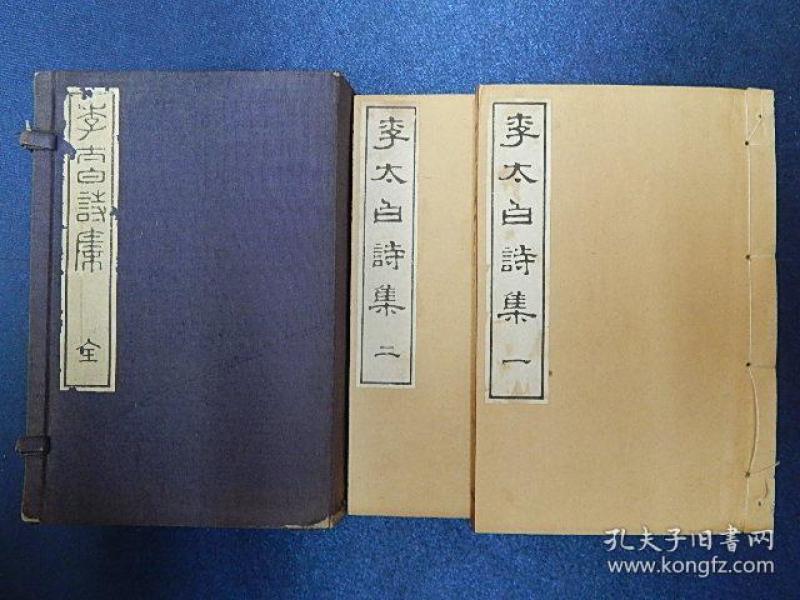 李太白詩集 全
李太白詩集 二
李太白詩集 一
孔夫子旧书网
www.kongfz.com